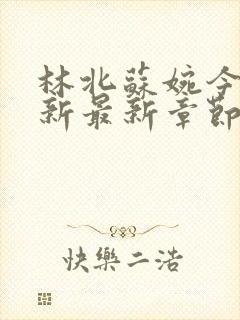 林北蘇婉今
新最新章節
快樂二浩